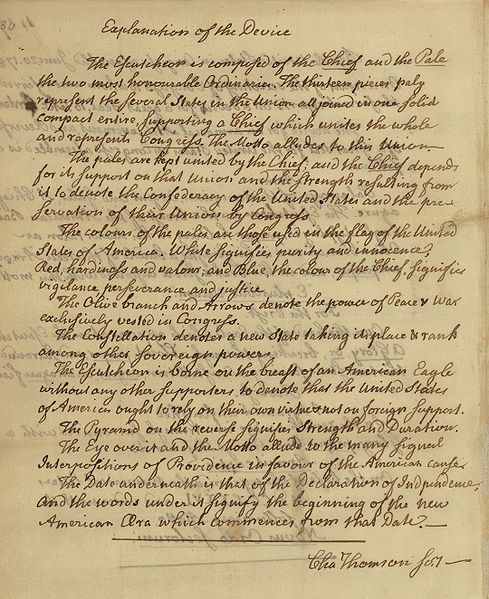 Explanation of the Device
The Escutcheon is composed of the Chief and the Pale
the two most honourable Ordinaries. The thirteen pieces paly
represent the several States in the Union all joined in one solid
compact entire, supporting a Chief which unites the whole
and represents Congress. The Motto alludes to this Union.
The pales are kept united by the Chief, and the Chief depends
for its support on that Union and the strength resulting from
it to denote the Confederacy of the United States and the pre-
servation of their Union by Congress
The colours of the pales are those used in the flag of the United
States of America. White signifies purity and innocence;
Red, hardiness and valour; and Blue, the colour of the Chief, signifies
vigilance perseverance and justice.
The Olive branch and Arrows denote the power of Peace & War
exclusively vested in Congress.
The Constellation denotes a new State taking its place & rank
among other sovereign powers,
The Escutcheon is borne on the breast of an American Eagle
without any other supporters, to denote that the United States
of America ought to rely on their own virtue not on foreign support.
The Pyramid on the reverse signifies Strength and Duration.
The Eye over it and the Motto allude to the many signal
Interpositions of Providence in favour of the American cause.
The Date underneath is that of the Declaration of Independence,
and the words under it signify the beginning of the new
American Æra which commences from that Date.
Cha Thomson Secy